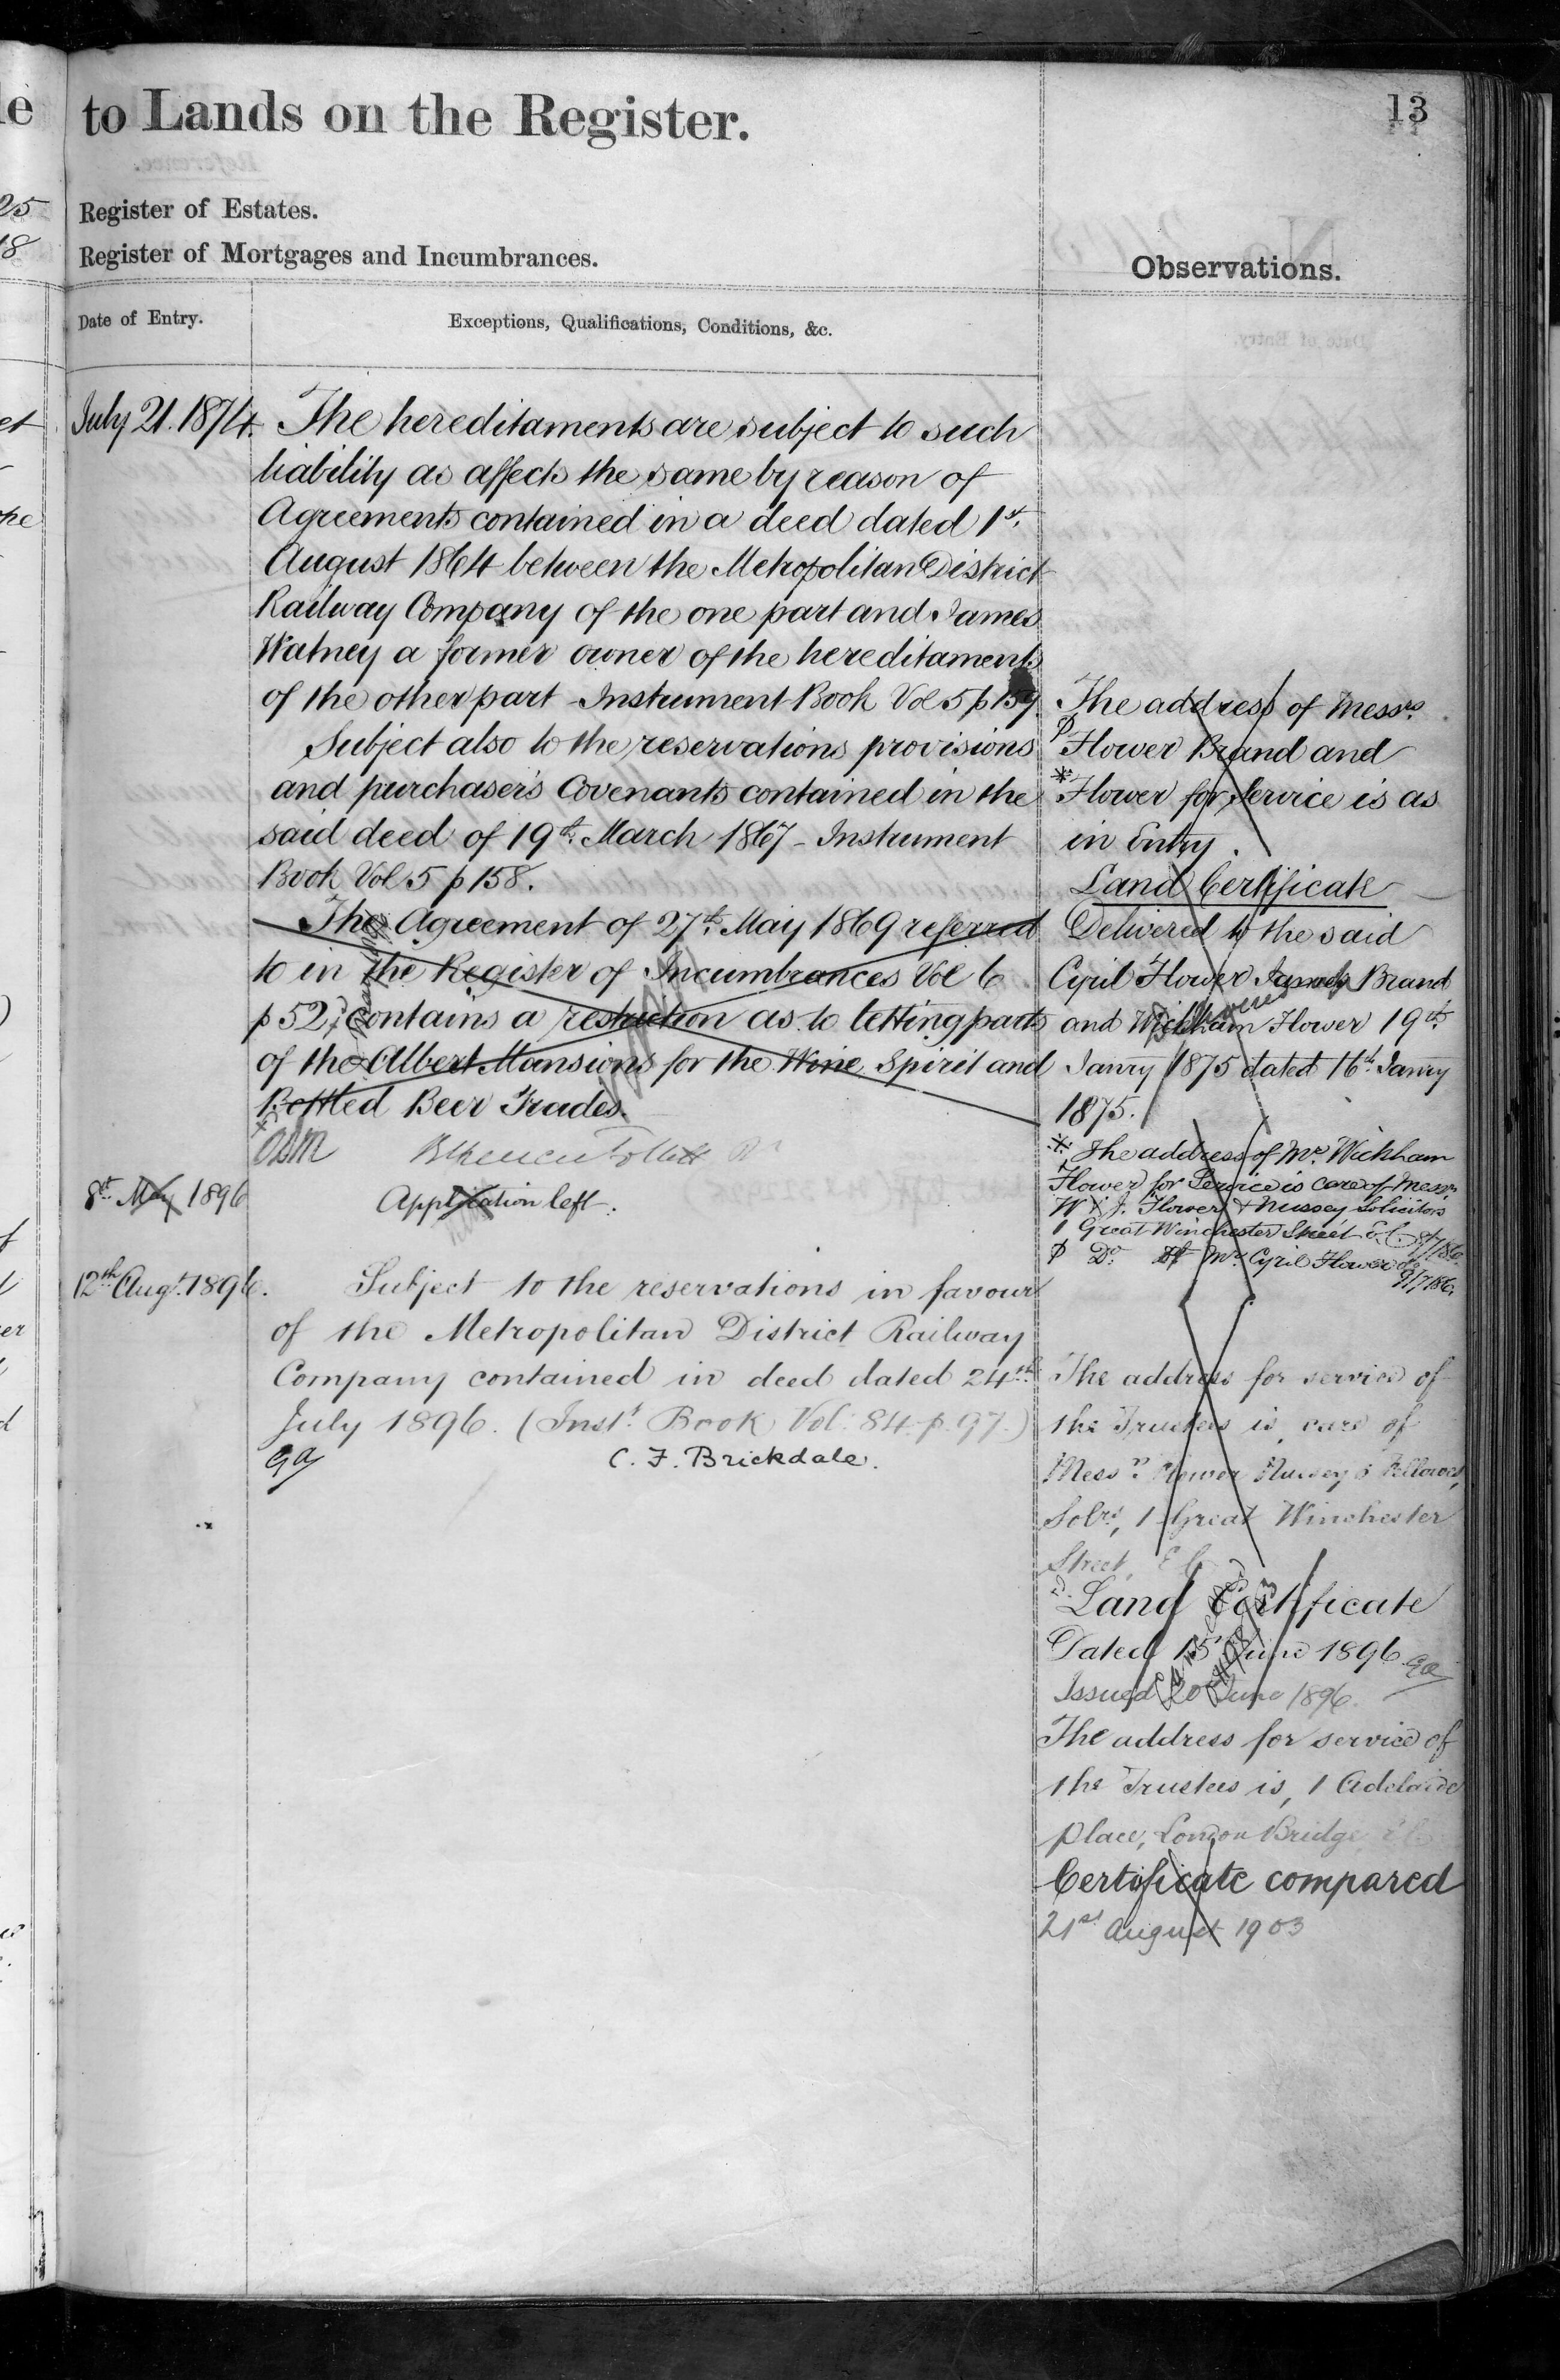 to Lands on the Register.
13
Register of Estates.
Register of Mortgages and Incumbrances.
Observations.
Date of Entry.
Exceptions, Qualifications, Conditions, &c.
July 21. 1874. The hereditaments are subject to such
liability as affects the same by reason of
Agreements contained in a deed dated 1st.
August 1864 between the Metropolitan District
Railway Company of the one part and James
Watney a former owner of the hereditaments
of the other part - Instrument Book Vol 5 p 159.
Subject also to the reservations provisions
and purchaser's Covenants contained in the
said deed of 19th. March 1867 - Instrument
Book Vol 5 p 158.
The Agreement of 27th. May 1869 referred
to in the Register of Incumbrances Vol 6
p 52, contains a restriction as to letting parts
of the Albert Mansions for the Wine, Spirit and
Bottled Beer Trades.
8th May 1896
Application left.
12th Augt. 1896. Subject to the reservations in favour
of the Metropolitan District Railway
Company contained in deed dated 24th
July 1896. (Inst. Book Vol. 84 p. 97.)
C. F. Brickdale.
The address of Messrs.
Flower Brand and
* Flower for Service is as
in Entry.
Land Certificate
Delivered to the said
Cyril Flower James Brand
and Wickham Flower 19th
Janry 1875 dated 16th. Janry
1875.
* The address of Mr. Wickham
Flower for Service is care of Messrs
W & J. Flower & Nussey Solicitors
1 Great Winchester Street E.C.
Do. of Mr. Cyril Flower do.
9/7/86.
The address for service of
the Trustees is, care of
Messrs. Flower Nussey & Fellowes,
Solrs., 1 Great Winchester
Street, E.C.
Land Certificate
Dated 15 June 1896.
Issued 20 June 1896.
The address for service of
the Trustees is, 1 Adelaide
place, London Bridge E.C.
Certificate compared
21st August 1903